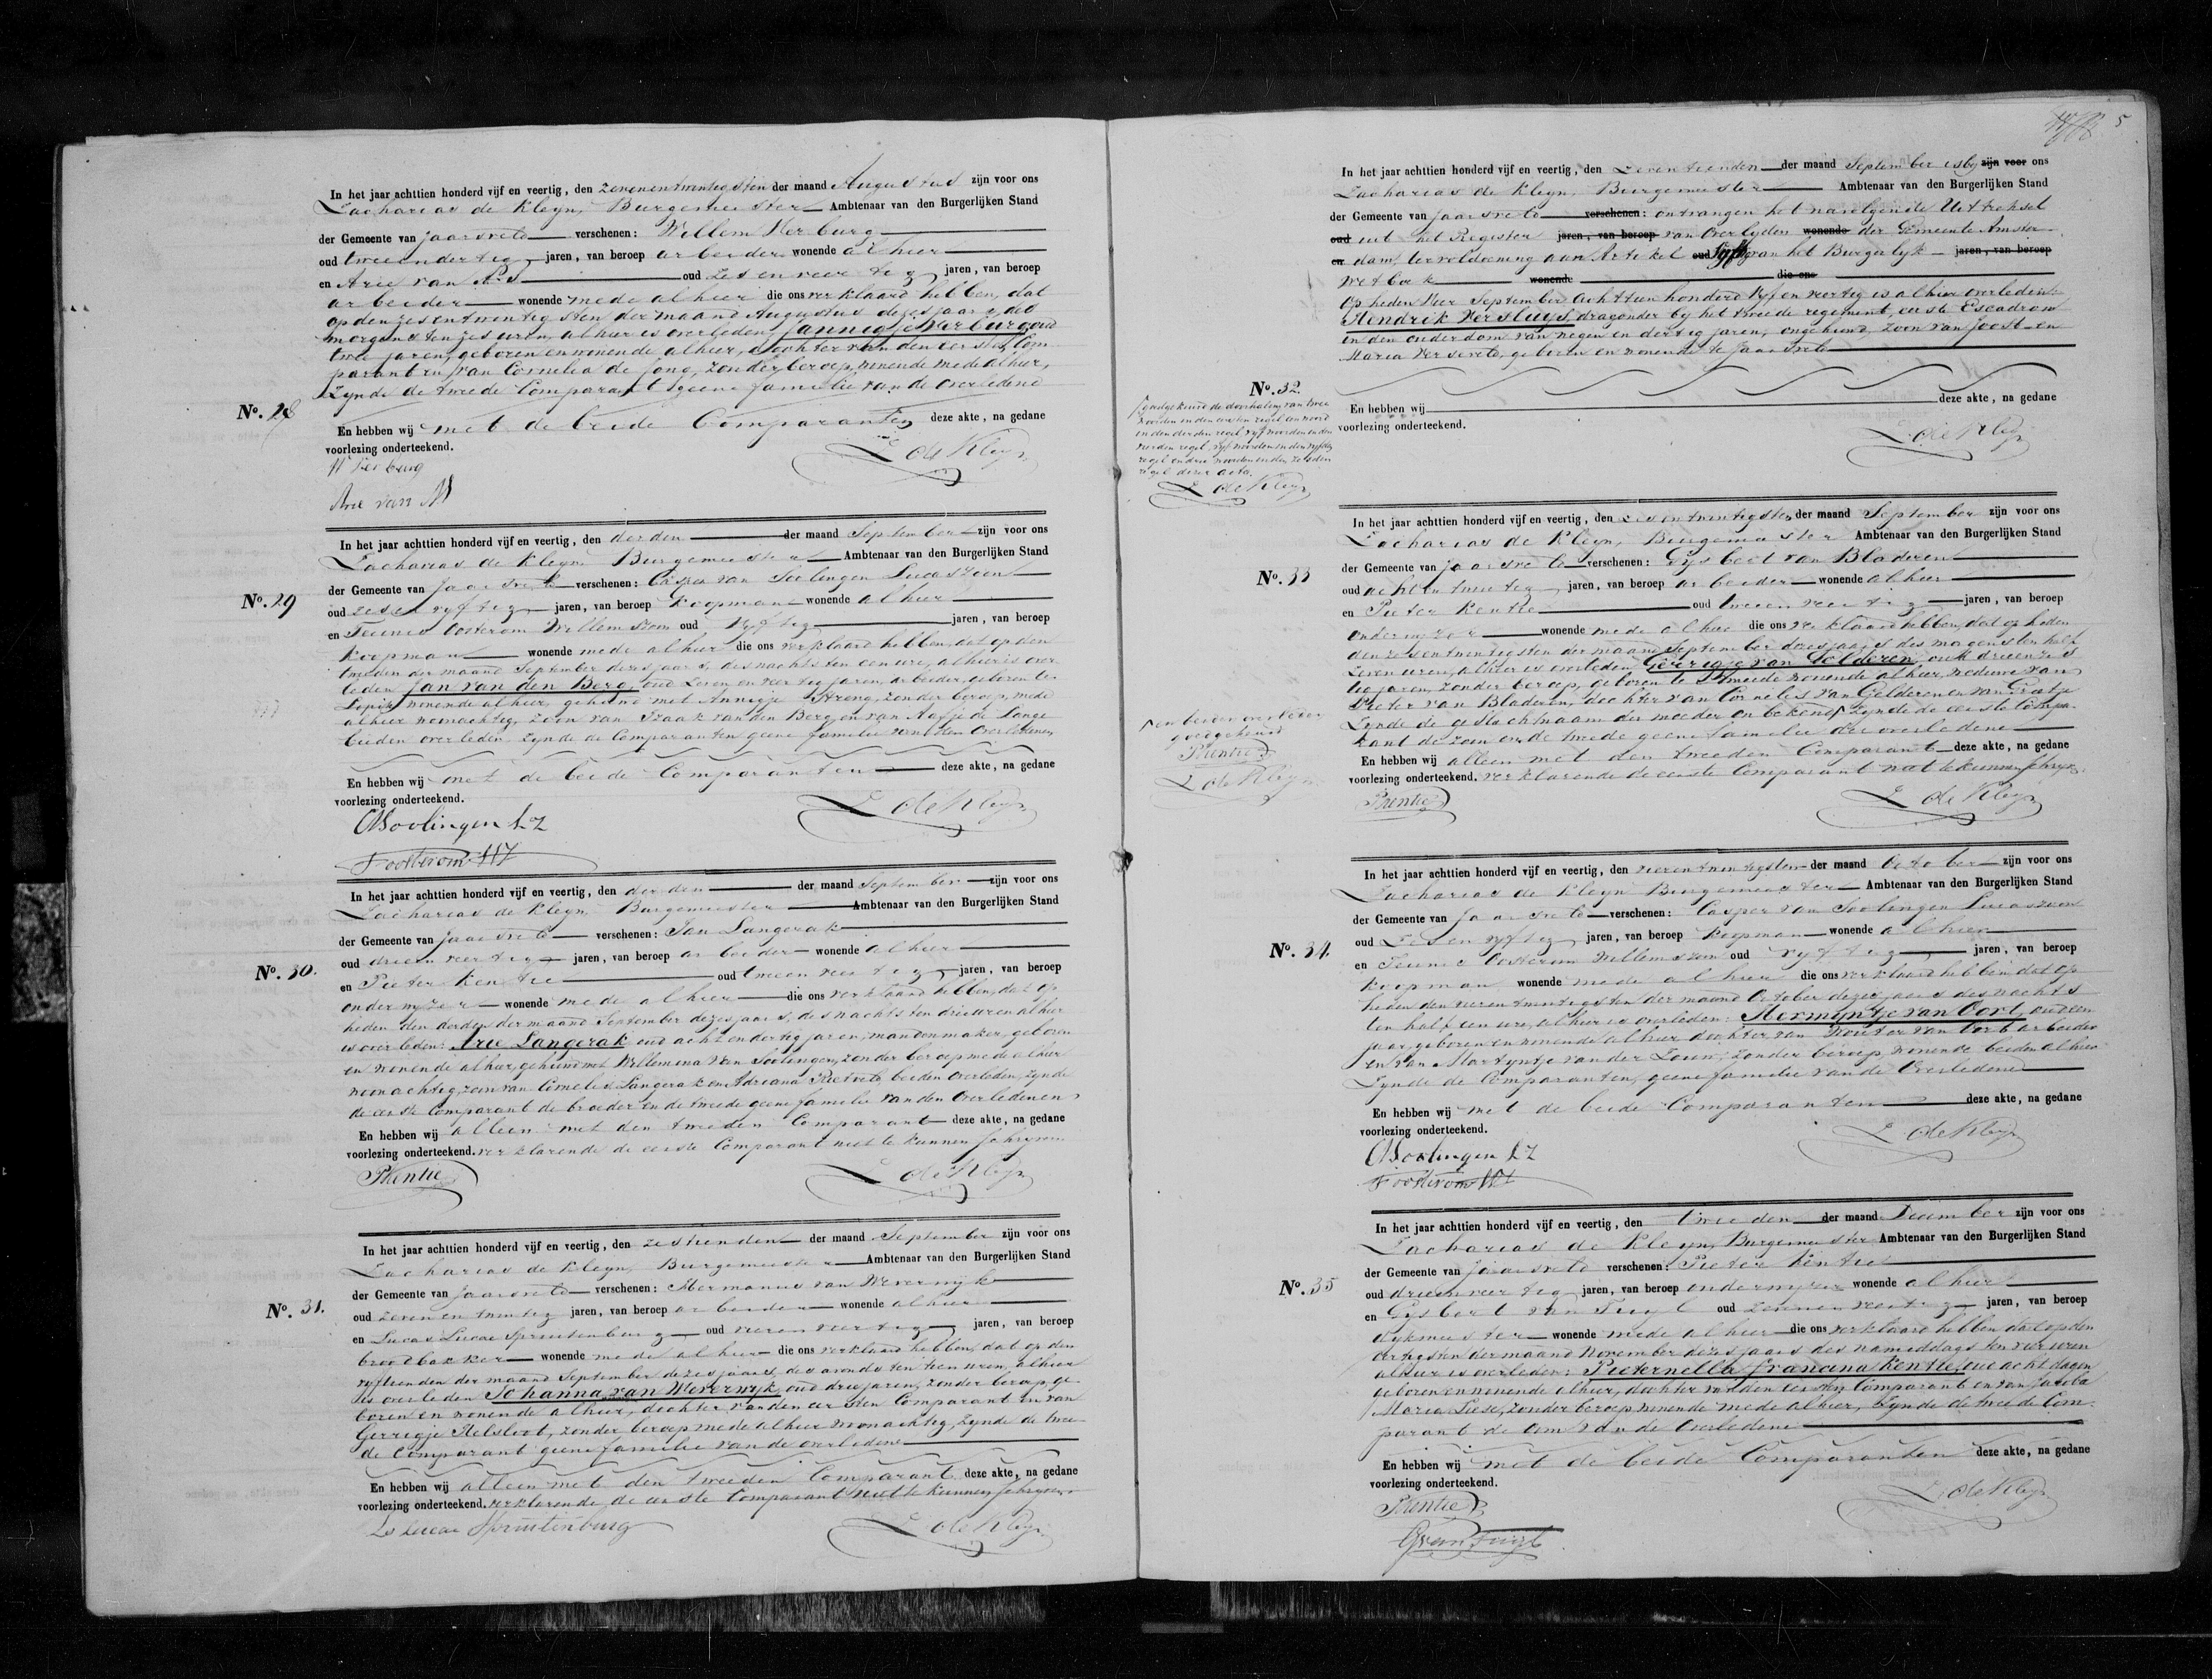 In het jaar achttien honderd vijf en veertig, den zevenentwintigsten der maand Augustus zijn voor ons
Zacharias de Kleyn, Burgemeester Ambtenaar van den Burgerlijken Stand
der Gemeente van Jaarsveld verschenen: Willem Verburg
oud tweeendertig jaren, van beroep arbeider wonende alhier
en Arie van oud zesenveertig jaren, van beroep
arbeider wonende mede alhier die ons verklaard hebben, dat
op den zesentwintigsten der maand Augustus dezes jaars, des
morgens ten zes uren, alhier is overleden, Jannigje Verburg oud
twee jaren, geboren en wonende alhier, dochter van den eersten Com-
parant en van Cornelia de Jong, zonder beroep, wonende mede alhier,
Zynde de tweede Comparant geene familie van de overledene
No. 28
En hebben wij met de beide Comparanten deze akte, na gedane
voorlezing onderteekend.
W Verburg
Z de Kleyn
Arie van
In het jaar achttien honderd vijf en veertig, den derden der maand September zijn voor ons
Zacharias de Kleyn Burgemeester Ambtenaar van den Burgerlijken Stand
der Gemeente van Jaarsveld verschenen: Casper van Soolingen Lucaszoon
No. 29
oud zesenvyftig jaren, van beroep Koopman wonende alhier
en Teunis Oosterom Willemszoon oud vyftig jaren, van beroep
Koopman wonende mede alhier die ons verklaard hebben, dat op den
tweeden der maand September dezes jaars, des nachts ten een ure, alhier is over-
leden Jan van den Berg, oud zeven en veertig jaren, arbeider, geboren te
Lopik wonende alhier, gehuwd met Annigje Streng, zonder beroep, mede
alhier woonachtig, zoon van Izaak van den Berg, en van Aafje de Lange
beiden overleden. Zynde de Comparanten geene familie van den Overledenen
En hebben wij met de beide Comparanten deze akte, na gedane
voorlezing onderteekend.
Z de Kleyn
CVSoolingen LZ
TOosterom WZ
In het jaar achttien honderd vijf en veertig, den derden der maand September zijn voor ons
Zacharias de Kleyn Burgemeester Ambtenaar van den Burgerlijken Stand
der Gemeente van Jaarsveld verschenen: Jan Langerak
No. 30.
oud drieenveertig jaren, van beroep arbeider wonende alhier
en Pieter Kentie oud tweeenveertig jaren, van beroep
onderwyzer wonende mede alhier die ons verklaard hebben, dat op
heden den derden der maand September dezes jaars, des nachts ten drie uren alhier
is overleden: Arie Langerak oud achtendertig jaren, mandenmaker, geboren
en wonende alhier, gehuwd met Willemina van Soolingen, zonder beroep mede alhier
woonachtig, zoon van Cornelis Langerak en Adriana Rietveld, beiden overleden, zynde
de eerste Comparant de broeder en de tweede geene familie van den Overledenen
En hebben wij alleen met den tweeden Comparant deze akte, na gedane
voorlezing onderteekend. verklarende de eerste Comparant niet te kunnen schryven
PKentie
Z de Kleyn
In het jaar achttien honderd vijf en veertig, den zestienden der maand September zijn voor ons
Zacharias de Kleyn Burgemeester Ambtenaar van den Burgerlijken Stand
der Gemeente van Jaarsveld verschenen: Hermanus van Weverwyk
No. 31.
oud zevenentwintig jaren, van beroep arbeider wonende alhier
en Lucas Lucae Spruitenburg oud vierenveertig jaren, van beroep
broodbakker wonende mede alhier die ons verklaard hebben, dat op den
vyftienden der maand September dezes jaars, des avonds ten tien uren, alhier
is overleden Johanna van Weverwyk, oud drie jaren, zonder beroep, ge-
boren en wonende alhier, dochter van den eersten Comparant en van
Gerrigje Stelsloot, zonder beroep mede alhier woonachtig, zynde de twee-
de Comparant geene familie van de overledene
En hebben wij alleen met den tweeden Comparant deze akte, na gedane
voorlezing onderteekend. verklarende de eerste Comparant niet te kunnen schryven
Ls Lucae Spruitenburg
Z de Kleyn
5
In het jaar achttien honderd vijf en veertig, den zeventienden der maand September is by zijn voor ons
Zacharias de Kleyn, Burgemeester Ambtenaar van den Burgerlijken Stand
der Gemeente van Jaarsveld verschenen: ontvangen het navolgende Uittreksel
oud uit het Register jaren, van beroep van Overlyden wonende der Gemeente Amster-
en dam, ter voldoening aan Artikel oud van het Burgerlyk jaren, van beroep
Wetboek wonende die ons
Op heden Vier September achttien honderd Vyf en veertig is alhier overleden:
Hendrik Versluys, dragonder by het tweede regement, eerste Escadron
in den ouderdom van negen en dertig jaren, ongehuwd, zoon van Joost en
Maria Verweerd, geboren en wonende te Jaarsveld
No. 32
goedgekeurd de doorhaling van twee
woorden in den eersten regel een woord
in den derden regel vyf woorden in den
vierden regel, vyf woorden in den vyfden
regel en drie woorden in den zesden
regel dezer acte.
Z de Kleyn
En hebben wij deze akte, na gedane
voorlezing onderteekend.
Z de Kleyn
In het jaar achttien honderd vijf en veertig, den zesentwintigsten der maand September zijn voor ons
Zacharias de Kleyn, Burgemeester Ambtenaar van den Burgerlijken Stand
der Gemeente van Jaarsveld verschenen: Gysbert van Bladeren
No. 33
oud achtentwintig jaren, van beroep arbeider wonende alhier
en Pieter Kentie oud tweeenveertig jaren, van beroep
onderwyzer wonende mede alhier die ons verklaard hebben, dat op heden
den zesentwintigsten der maand September dezes jaars des morgens ten half
zeven uren, alhier is overleden, Gerrigje van Gelderen, oud drieenzes-
tig jaren, zonder beroep, geboren te Ameide wonende alhier, weduwe van
Pieter van Bladeren, dochter van Cornelis van Gelderen en van Grietje
Zynde de geslachtnaam der moeder onbekend, Zynde de eerste Compa-
rant de zoon en de tweede geene familie der overledene
en beiden overleden
goedgekeurd
PKentie
Z de Kleyn
En hebben wij alleen met den tweeden Comparant deze akte, na gedane
voorlezing onderteekend. verklarende de eerste Comparant niet te kunnen schryven
PKentie
Z de Kleyn
In het jaar achttien honderd vijf en veertig, den vierentwintigsten der maand October zijn voor ons
Zacharias de Kleyn Burgemeester Ambtenaar van den Burgerlijken Stand
der Gemeente van Jaarsveld verschenen: Casper van Soolingen Lucaszoon
No. 34.
oud zesenvyftig jaren, van beroep Koopman wonende alhier
en Teunis Oosterom Willemszoon oud vyftig jaren, van beroep
Koopman wonende mede alhier die ons verklaard hebben, dat op
heden den vierentwintigsten der maand October dezes jaars des nachts
ten half een ure, alhier is overleden: Hermyntje van Oort, oud een
jaar, geboren en wonende alhier dochter van Wouter van Oort arbeider
en van Martyntje van der Louw, zonder beroep, wonende beiden alhier
Zynde de Comparanten, geene familie van de Overledene
En hebben wij met de beide Comparanten deze akte, na gedane
voorlezing onderteekend.
Z de Kleyn
CVSoolingen LZ
TOosterom WZ
In het jaar achttien honderd vijf en veertig, den tweeden der maand December zijn voor ons
Zacharias de Kleyn, Burgemeester Ambtenaar van den Burgerlijken Stand
der Gemeente van Jaarsveld verschenen: Pieter Kentie
No. 35
oud drieenveertig jaren, van beroep onderwyzer wonende alhier
en Gysbert van Tuyl oud zevenenveertig jaren, van beroep
dykmeester wonende mede alhier die ons verklaard hebben, dat op den
dertigsten der maand November dezes jaars des namiddags ten vier uren
alhier is overleden: Pieternella Francina Kentie, oud acht dagen
geboren en wonende alhier, dochter van den eersten Comparant en van Jacoba
Maria Liese, zonder beroep wonende mede alhier, Zynde de tweede Com-
parant de Oom van de Overledene
En hebben wij met de beide Comparanten deze akte, na gedane
voorlezing onderteekend.
PKentie
Z de Kleyn
GvanTuyl